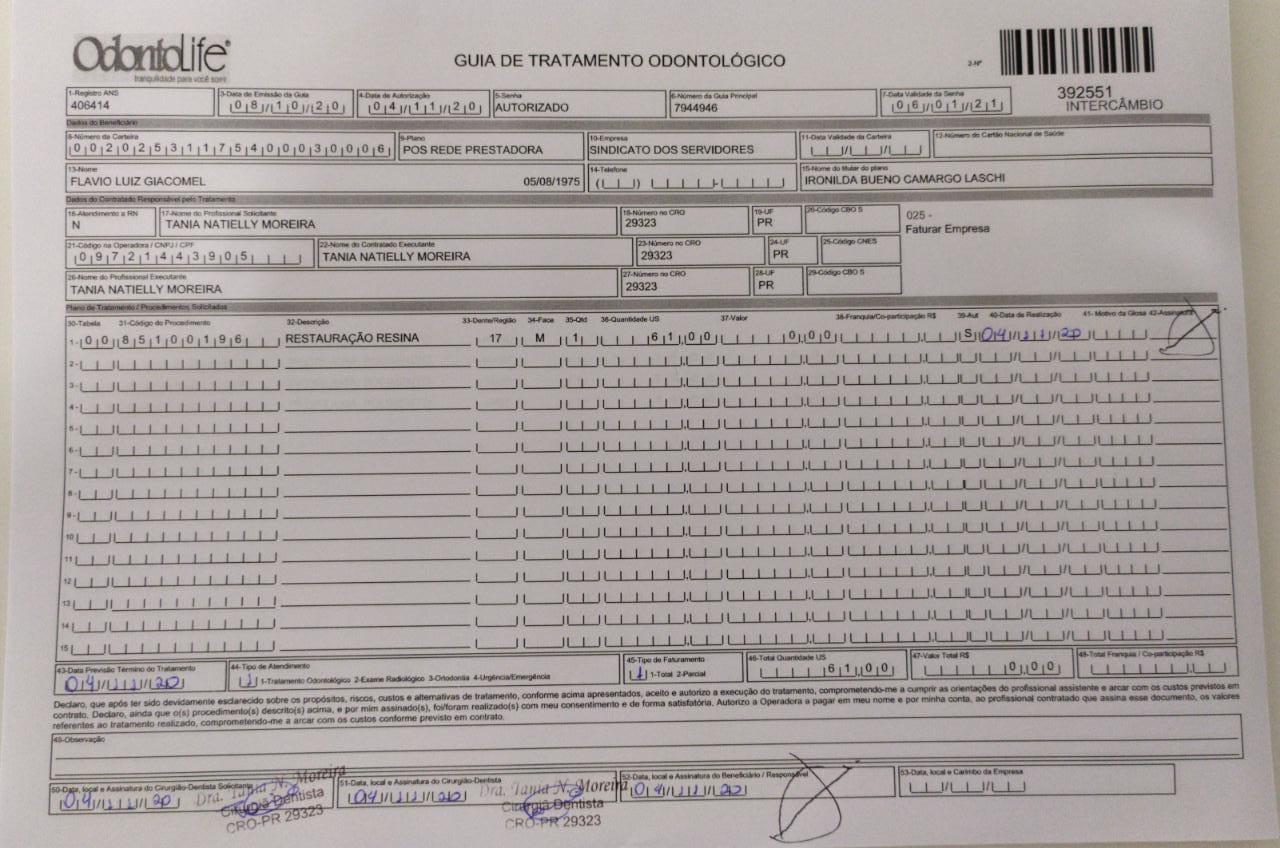 OdontoLife®
tranquilidade para você sorrir
GUIA DE TRATAMENTO ODONTOLÓGICO
2-Nº
392551
INTERCÂMBIO
1-Registro ANS
406414
3-Data de Emissão da Guia
08/10/20
4-Data de Autorização
04/11/20
5-Senha
AUTORIZADO
6-Número da Guia Principal
7944946
7-Data Validade da Senha
06/01/21
Dados do Beneficiário
8-Número da Carteira
00202531175400030006
9-Plano
POS REDE PRESTADORA
10-Empresa
SINDICATO DOS SERVIDORES
11-Data Validade da Carteira
12-Número do Cartão Nacional de Saúde
13-Nome
FLAVIO LUIZ GIACOMEL 05/08/1975
14-Telefone
15-Nome do titular do plano
IRONILDA BUENO CAMARGO LASCHI
Dados do Contratado Responsável pelo Tratamento
16-Atendimento a RN
N
17-Nome do Profissional Solicitante
TANIA NATIELLY MOREIRA
18-Número no CRO
29323
19-UF
PR
20-Código CBO S
025 -
Faturar Empresa
21-Código na Operadora / CNPJ / CPF
09721443905
22-Nome do Contratado Executante
TANIA NATIELLY MOREIRA
23-Número no CRO
29323
24-UF
PR
25-Código CNES
26-Nome do Profissional Executante
TANIA NATIELLY MOREIRA
27-Número no CRO
29323
28-UF
PR
29-Código CBO S
Plano de Tratamento / Procedimentos Solicitados
30-Tabela 31-Código do Procedimento 32-Descrição 33-Dente/Região 34-Face 35-Qtd 36-Quantidade US 37-Valor 38-Franquia/Co-participação R$ 39-Aut 40-Data de Realização 41- Motivo da Glosa 42-Assinatura
1- 00 85100196 RESTAURAÇÃO RESINA 17 M 1 61,00 0,00 S 04/11/20
2-
3-
4-
5-
6-
7-
8-
9-
10
11
12
13
14
15
43-Data Previsão Término do Tratamento
04/11/20
44-Tipo de Atendimento
1 1-Tratamento Odontológico 2-Exame Radiológico 3-Ortodontia 4-Urgência/Emergência
45-Tipo de Faturamento
1 1-Total 2-Parcial
46-Total Quantidade US
61,00
47-Valor Total R$
0,00
48-Total Franquia / Co-participação R$
Declaro, que após ter sido devidamente esclarecido sobre os propósitos, riscos, custos e alternativas de tratamento, conforme acima apresentados, aceito e autorizo a execução do tratamento, comprometendo-me a cumprir as orientações do profissional assistente e arcar com os custos previstos em
contrato. Declaro, ainda que o(s) procedimento(s) descrito(s) acima, e por mim assinado(s), foi/foram realizado(s) com meu consentimento e de forma satisfatória. Autorizo a Operadora a pagar em meu nome e por minha conta, ao profissional contratado que assina esse documento, os valores
referentes ao tratamento realizado, comprometendo-me a arcar com os custos conforme previsto em contrato.
49-Observação
50-Data, local e Assinatura do Cirurgião-Dentista Solicitante
04/11/20
Dra. Tania N. Moreira
Cirurgiã Dentista
CRO-PR 29323
51-Data, local e Assinatura do Cirurgião-Dentista
04/11/20
Dra. Tania N. Moreira
Cirurgiã Dentista
CRO-PR 29323
52-Data, local e Assinatura do Beneficiário / Responsável
04/11/20
53-Data, local e Carimbo da Empresa